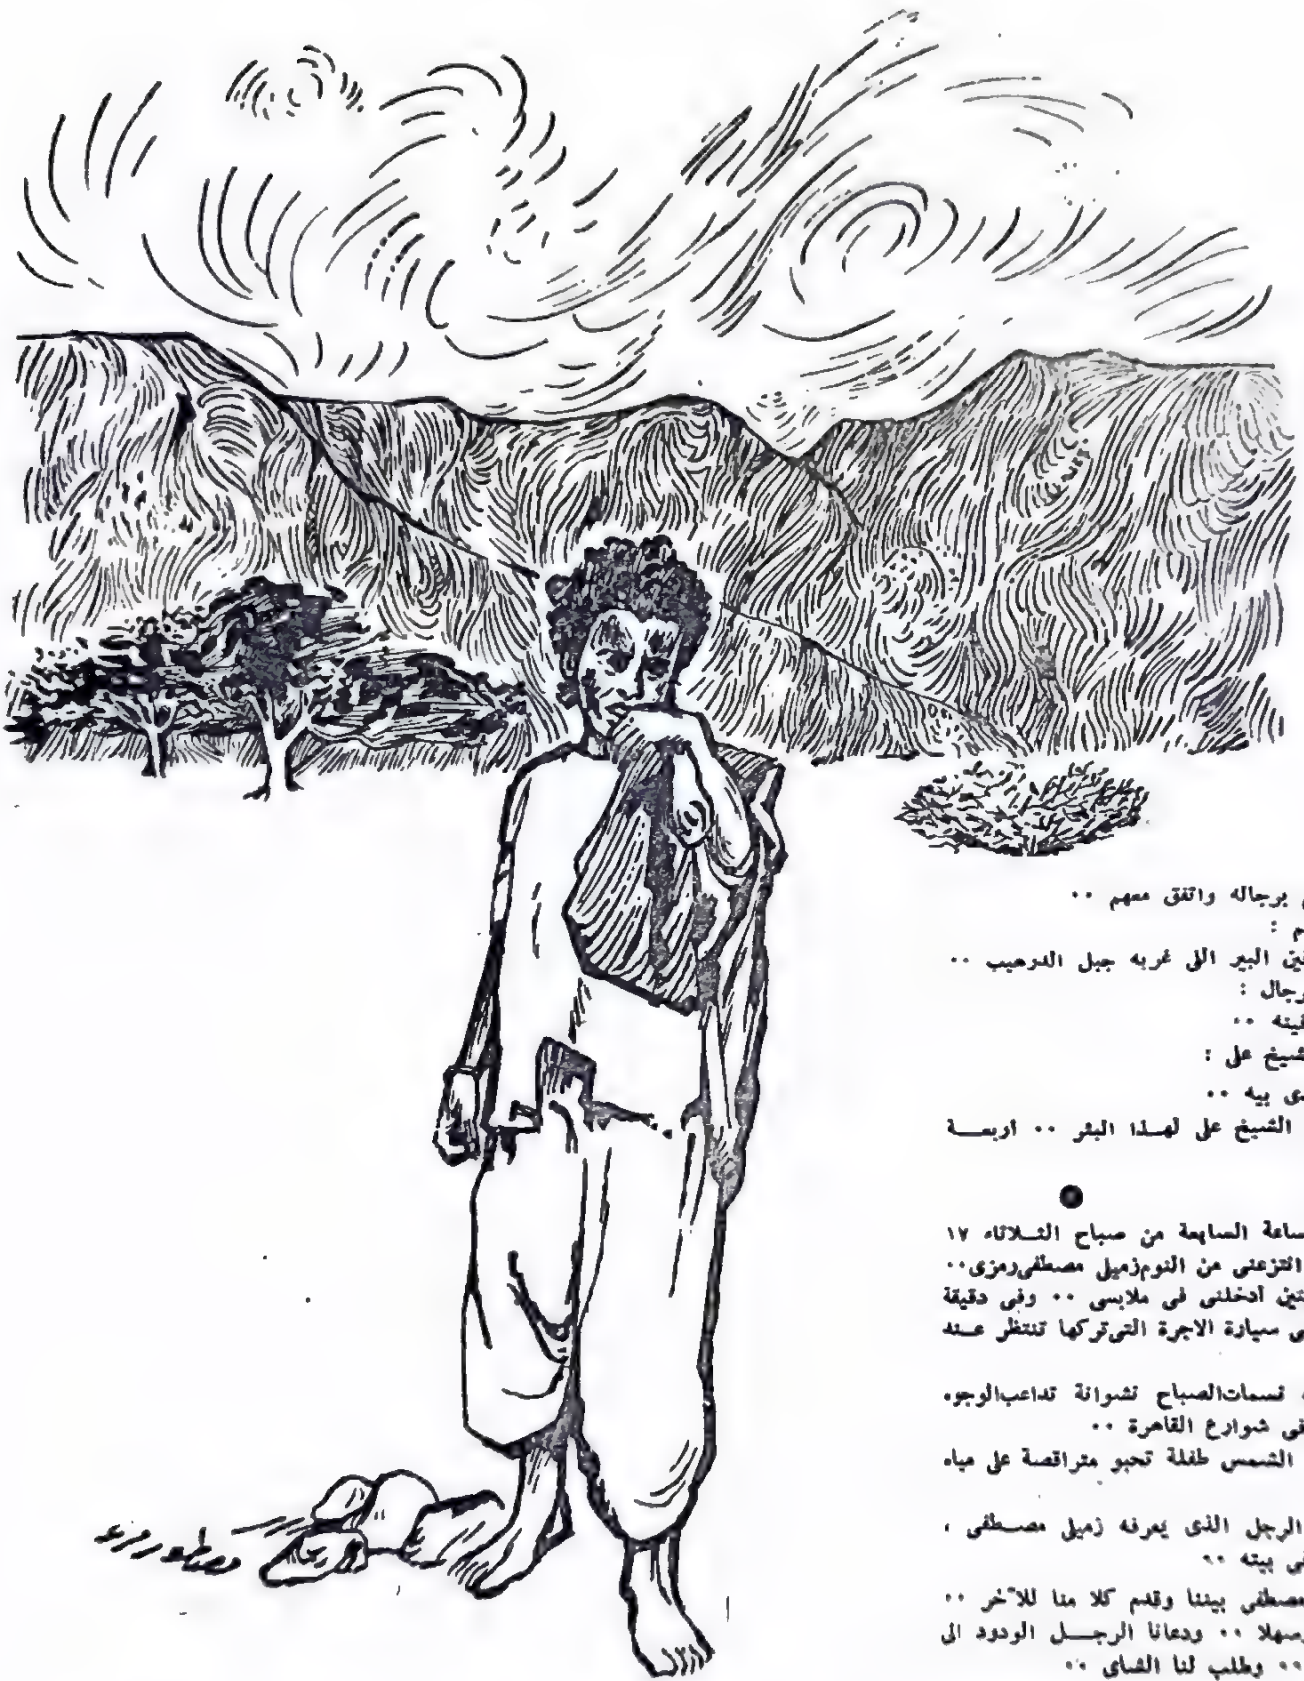 برجاله واتفق معهم ..
م :
البير اللى غربه جبل الدرهيب ..
رجال :
فينه ..
شيخ على :
دى بيه ..
الشيخ على لهذا البئر .. اربعة
ساعة السابعة من صباح الثلاثاء ١٧
انتزعنى من النوم زميلى مصطفى رمزى ..
أدخلنى فى ملابسى .. وفى دقيقة
سيارة الاجرة التى تركها تنتظر عند
نسمات الصباح نشوانة تداعب الوجوه
فى شوارع القاهرة ..
الشمس طفلة تحبو متراقصة على مياه
الرجل الذى يعرفه زميلى مصطفى ،
فى بيته ..
مصطفى بيننا وقدم كلا منا للآخر ..
وسهلا .. ودعانا الرجل الودود الى
.. وطلب لنا الشاى ..
مصطفى رمزى